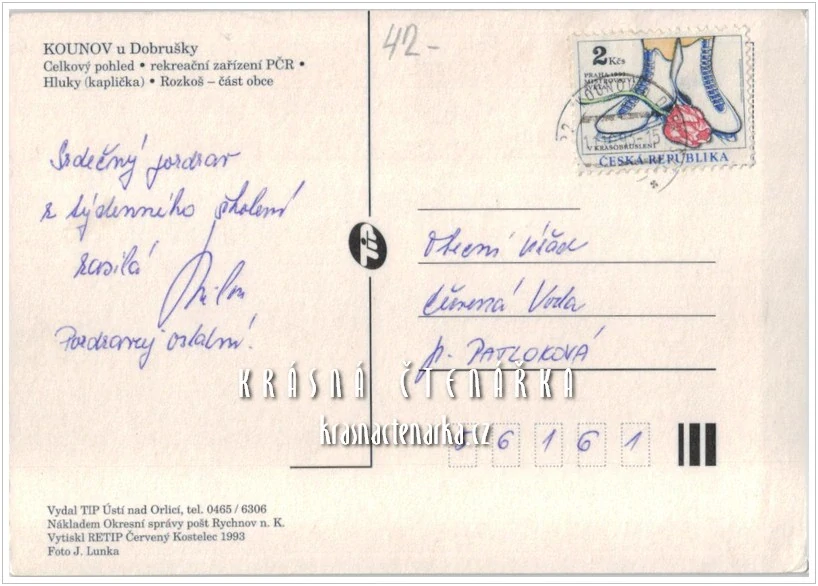 42-
KOUNOV u Dobrušky
Celkový pohled • rekreační zařízení PČR •
Hluky (kaplička) • Rozkoš – část obce
2 Kčs
PRAHA 1993
MISTROVSTVÍ
SVĚTA
V KRASOBRUSLENÍ
ČESKÁ REPUBLIKA
Srdečný pozdrav
z týdenního školení
zasílá
Milan
Pozdravuj ostatní!
TIP
Obecní úřad
Červená Voda
p. PATLOKOVÁ
KRÁSNÁ ČTENÁŘKA
krasnactenarka.cz
5 6 1 6 1
Vydal TIP Ústí nad Orlicí, tel. 0465 / 6306
Nákladem Okresní správy pošt Rychnov n. K.
Vytiskl RETIP Červený Kostelec 1993
Foto J. Lunka